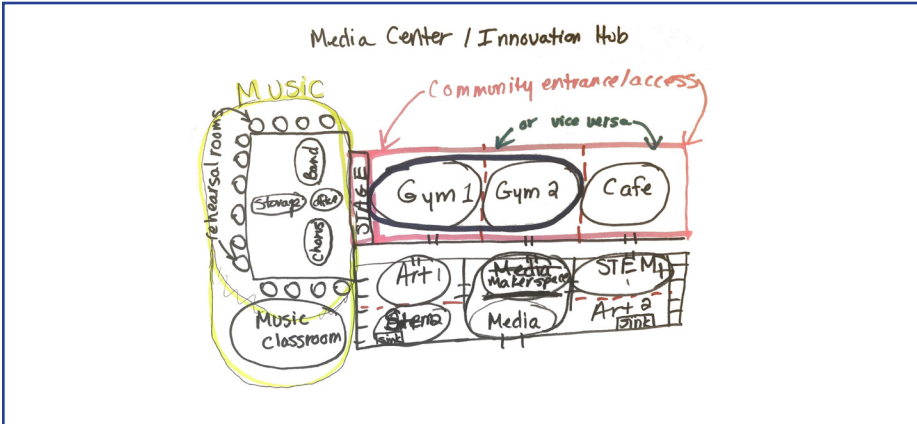 Media Center / Innovation Hub
MUSIC
Community entrance/access
or vice versa
rehearsal rooms
Band
Storage
office
Chorus
STAGE
Gym 1
Gym 2
Cafe
Art 1
Media
Makerspace
STEM 1
Stem 2
sink
Media
Art 2
sink
Music
classroom